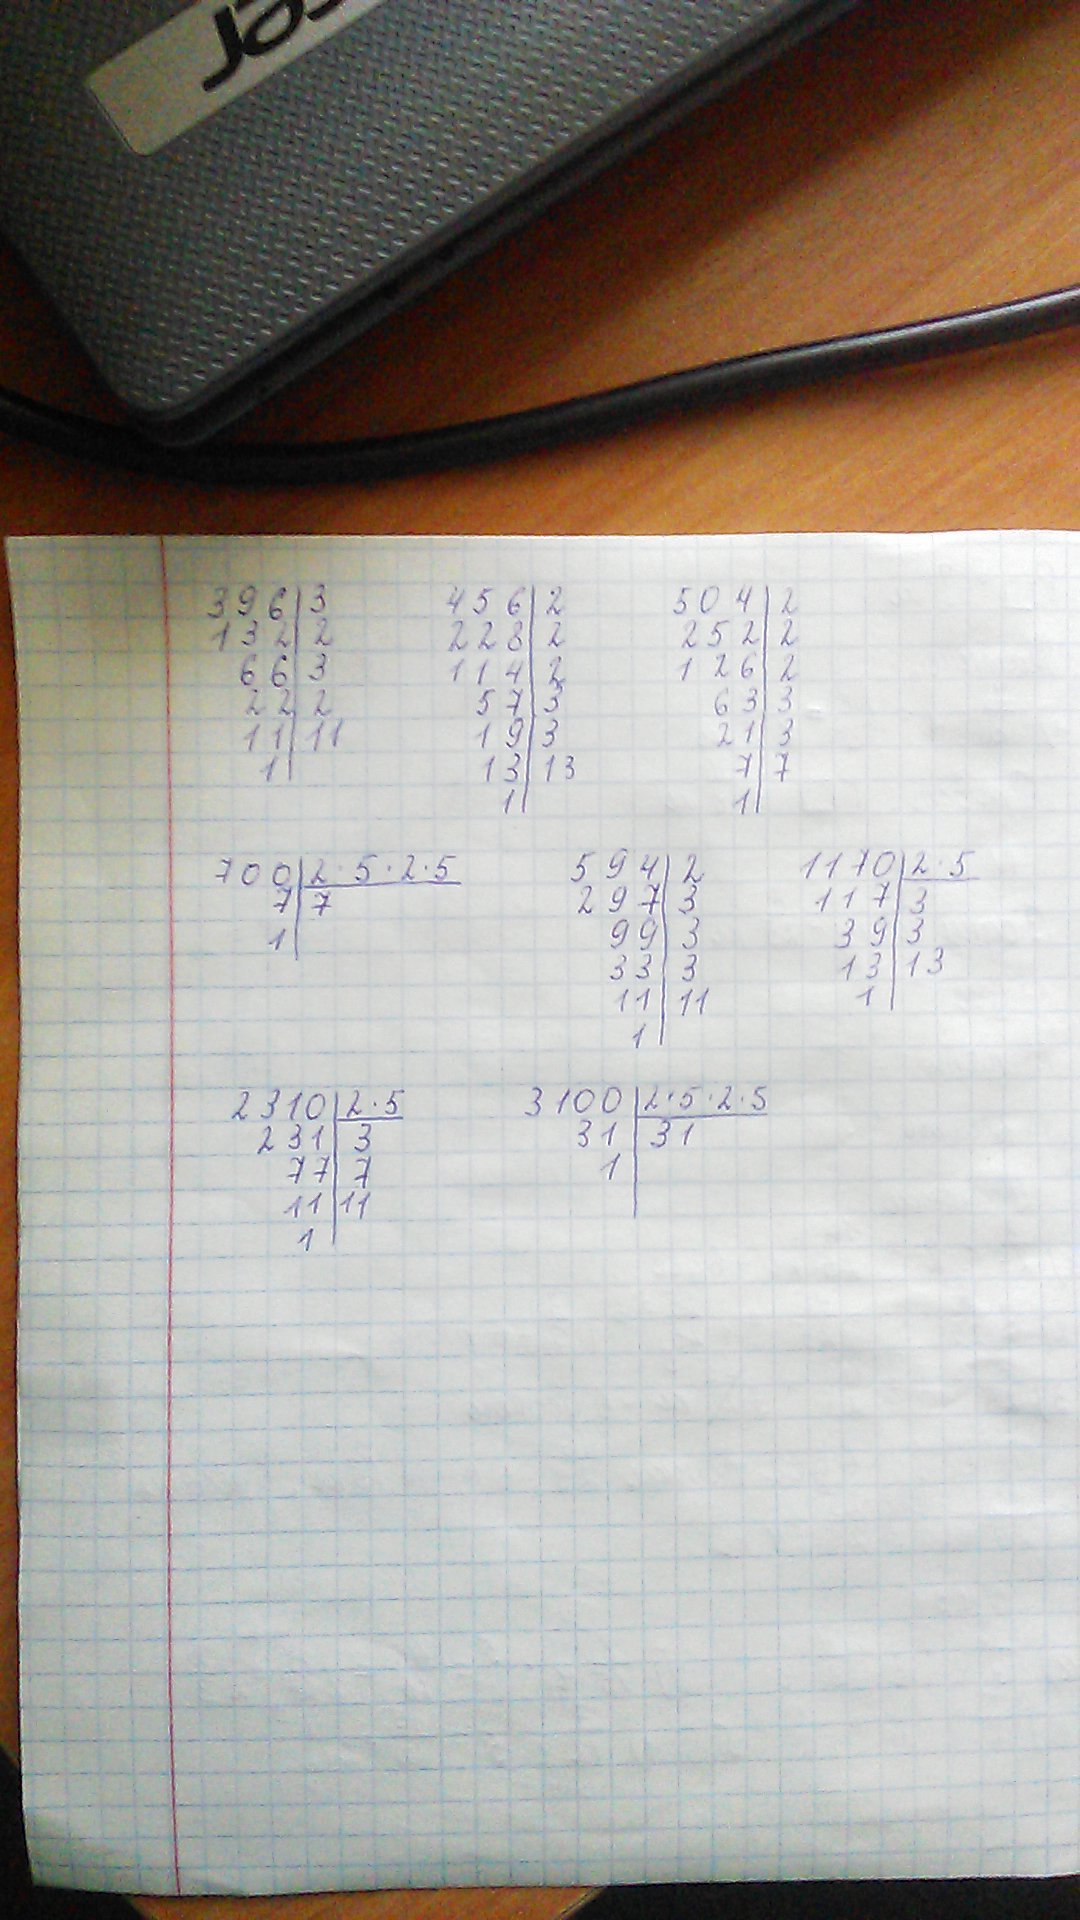 396|3 456|2 504|2
132|2 228|2 252|2
66|3 114|2 126|2
22|2 57|3 63|3
11|11 19|3 21|3
1| 13|13 7|7
1| 1|
700|2·5·2·5 594|2 1170|2·5
7|7 297|3 117|3
1| 99|3 39|3
33|3 13|13
11|11 1|
1|
2310|2·5 3100|2·5·2·5
231|3 31|31
77|7 1|
11|11
1|